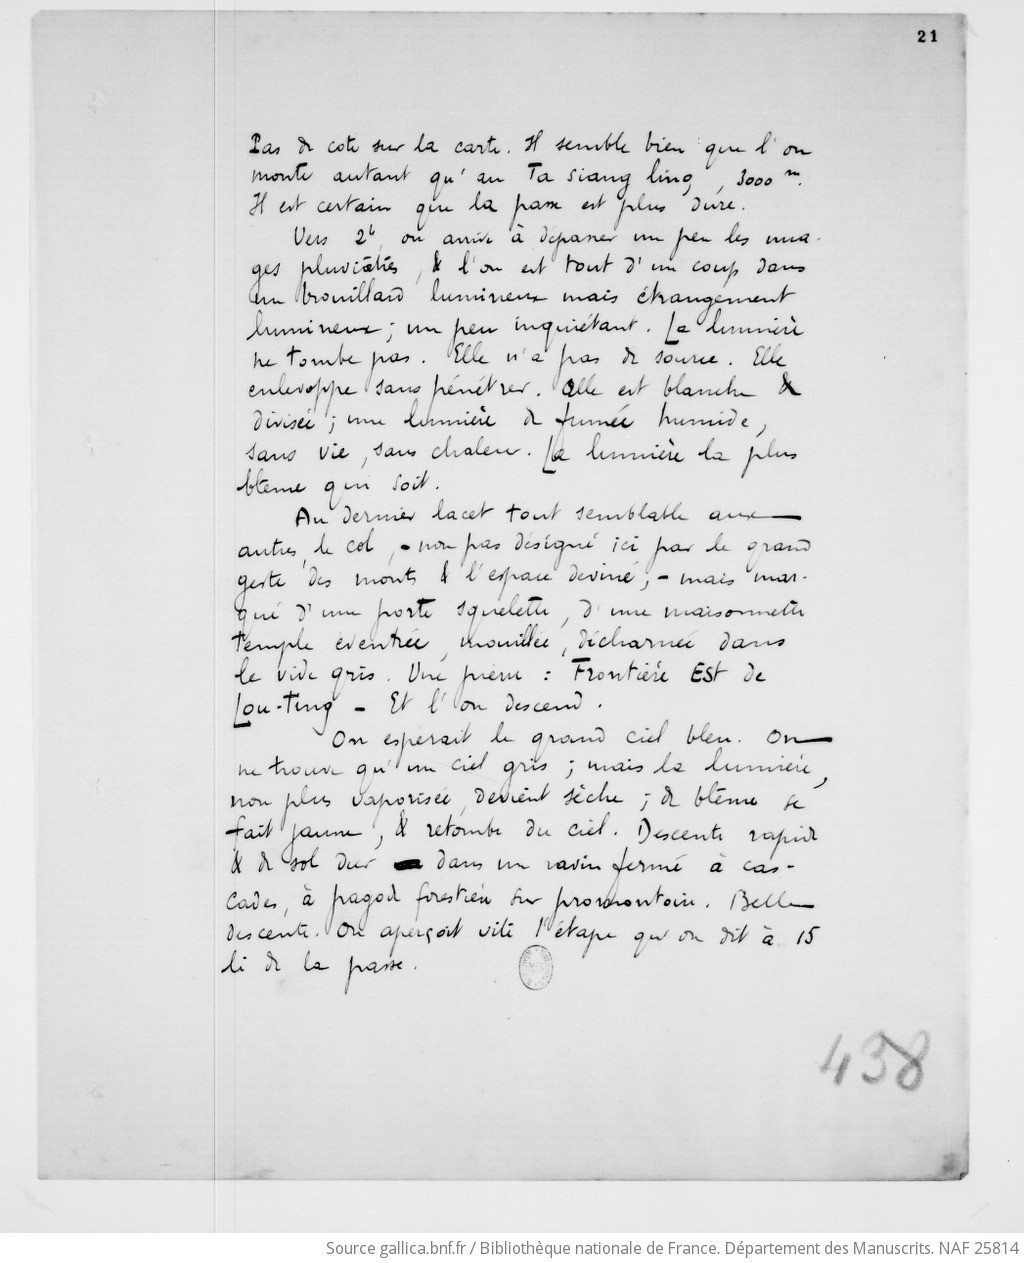 21
Pas de cote sur la carte. Il semble bien que l'on
monte autant qu'au Ta Siang ling, 3000 m.
Il est certain que la passe est plus dure.
Vers 2h, on arrive à dépasser un peu les nua-
ges pluviatiles, & l'on est tout d'un coup dans
un brouillard lumineux mais étrangement
lumineux ; un peu inquiétant. La lumière
ne tombe pas. Elle n'a pas de source. Elle
enveloppe sans pénétrer. Elle est blanche &
divisée ; une lumière de fumée humide,
sans vie, sans chaleur. La lumière la plus
blême qui soit.
Au dernier lacet tout semblable aux
autres, le col, - non pas désigné ici par le grand
geste des monts & l'espace deviné, - mais mar-
qué d'une porte squelette, d'une maisonnette
temple éventrée, mouillée, décharnée dans
le vide gris. Une pierre : Frontière EST de
Lou-Ting - Et l'on descend.
On espérait le grand ciel bleu. On
ne trouve qu'un ciel gris ; mais la lumière,
non plus vaporisée, devient sèche ; de blême se
fait jaune, & retombe du ciel. Descente rapide
& de sol dur dans un ravin fermé à cas-
cades, à pagode forestière sur promontoire. Belle
descente. On aperçoit vite l'étape qu'on dit à 15
li de la passe.
438
Source gallica.bnf.fr / Bibliothèque nationale de France. Département des Manuscrits. NAF 25814